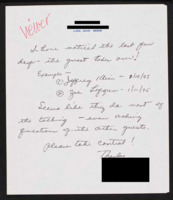 I have noticed the last few
days - the guest takes over!
Example -
① Jeffrey Klein - 8/10/85
② Joe Lofgren - 1/11/85
Seems like they do most of
the talking - even asking
questions of the other guests.
Please take control!
Thanks